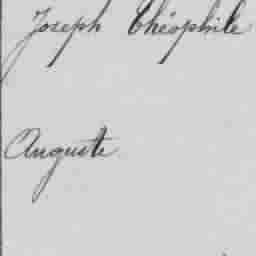 Joseph Théophile
Auguste